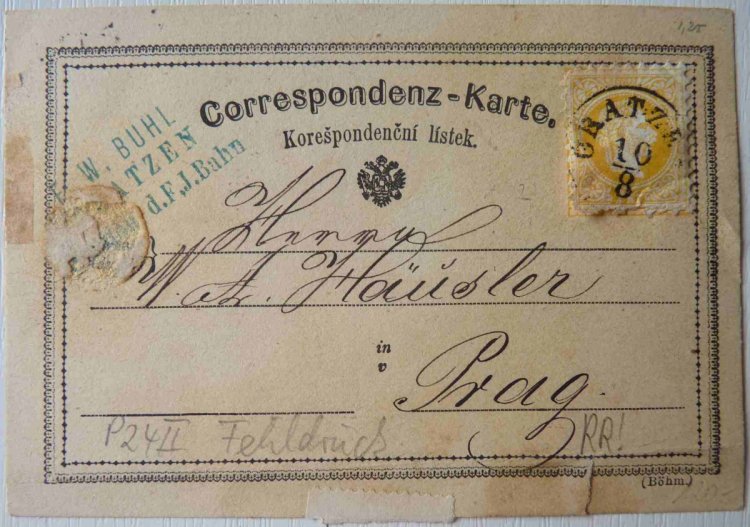 1,25
W. BUHL
ATZEN
d.F.J.Bahn
Correspondenz-Karte.
Korešpondenční lístek.
GRATZE
10
8
Herrn
W. A. Häusler
in
v
Prag.
P24II Fehldruck RR!
(Böhm.)